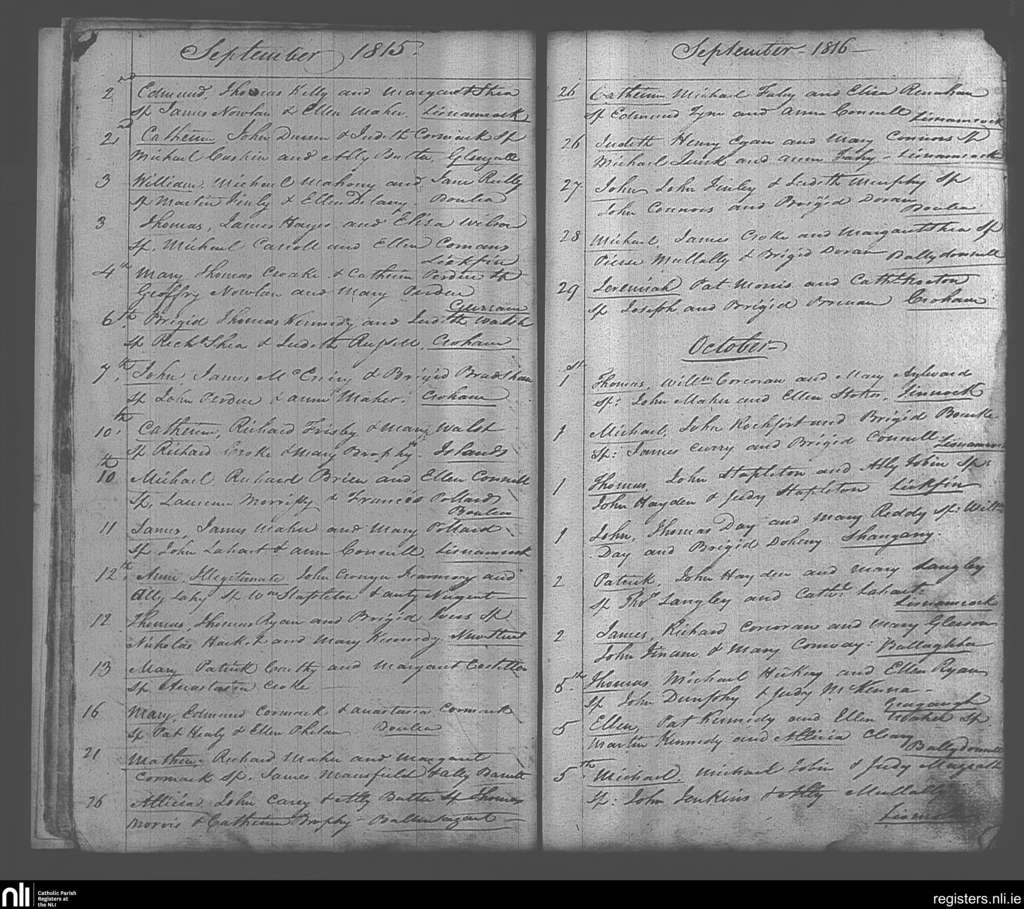 September 1815.
2nd Edmund, Thomas Kelly and Margaret Shea
Sp James Nowlan & Ellen Maher Lisnamrock
2nd Catherine John Dunn & Judith Cormack Sp
Michael Caskin and Ally Butler Glengall
3 William, Michael Mahony and Jane Reilly
Sp Martin Finly & Ellen Delany. Boulea
3 Thomas, James Hayes and Eliza Wilson
Sp, Michael Carroll and Ellen Comans
Lickfin
4th Mary Thomas Croake & Catherine Perdue Sp
Geoffry Nowlan and Mary Perdue
6th Brigid Thomas Kennedy and Judith Walsh
Sp Richd Shea & Judith Russell, Crohane
7th John, James McEniry & Brigid Bradshaw
Sp John Perdue & Anne Maher. Crohane
10th Catherine, Richard Frisby & Mary Walsh
Sp Richard Croke & Mary Brophy Islands
10th Michael Richard Brien and Ellen Connill
Sp, Laurence Morrissy & Frances Pollard
Boulea
11 James, James Maher and Mary Pollard
Sp John Lahart & Ann Connill Lisnamrock
12th Anne, Illegitimate John and
Ally Sp Wm Stapleton & Nugent
12 Thomas, Thomas Ryan and Brigid Sp
Nicholas Hackett and Mary Kennedy New Street
13 Mary Patrick and Margaret Costello
Sp Anastasia Croke
16 Mary, Edmund Cormack & Anastasia Cormack
Sp Pat Healy & Ellen Phelan Boulea
21 Mathew Richard Maher and Margaret
Cormack Sp. James Mansfield & Ally Barrett
26 Allicia John Carey & Ally Butler Sp Thomas
Morris & Catherine Brophy
September 1816
26 Catherine Michael Fahy and Eliza Renahan
Sp Edmund Tynn and Anne Connill Lisnamrock
26 Judith Henry Egan and Mary Connors Sp
Michael Quirk and Anne Fahy Lisnamrock
27 John John Finley & Judith Murphy Sp
John Connors and Brigid Doran
Boulea
28 Michael, James Croke and Margaret Shea Sp
Pierse Mullally & Brigid Doran Ballydonnell
29 Jeremiah Pat Morris and Cathe
Sp Joseph and Brigid Crohane
October
1st Thomas, Willm Corcoran and Mary Aylward
Sp: John Maher and Ellen Stokes,
1 Michael, John Rockfort and Brigid Bourke
Sp: James Curry and Brigid Connill Lisnamrock
1 Thomas, John Stapleton and Ally Tobin Sp:
John Hayden & Judy Stapleton Lickfin
1 John, Thomas Day and Mary Reddy Sp: Willm
Day and Brigid Doheny Shangany.
2 Patrick, John Hayden and Mary Langley
Sp Thos Langley and Cathe Lahart
Lisnamrock
2 James, Richard Corcoran and Mary Gleeson
John Finane & Mary Conway. Ballaghba
5th Thomas Michael Hickey and Ellen Ryan
Sp John Dunphy & Judy McKenna
5 Ellen, Pat Kennedy and Ellen Maher Sp
Martin Kennedy and Allicia Cleary
Ballydonnell
5th Michael Michael Tobin & Judy Magrath
Sp: John Jenkins & Ally Mullally
nli
Catholic Parish
Registers at
the NLI
registers.nli.ie